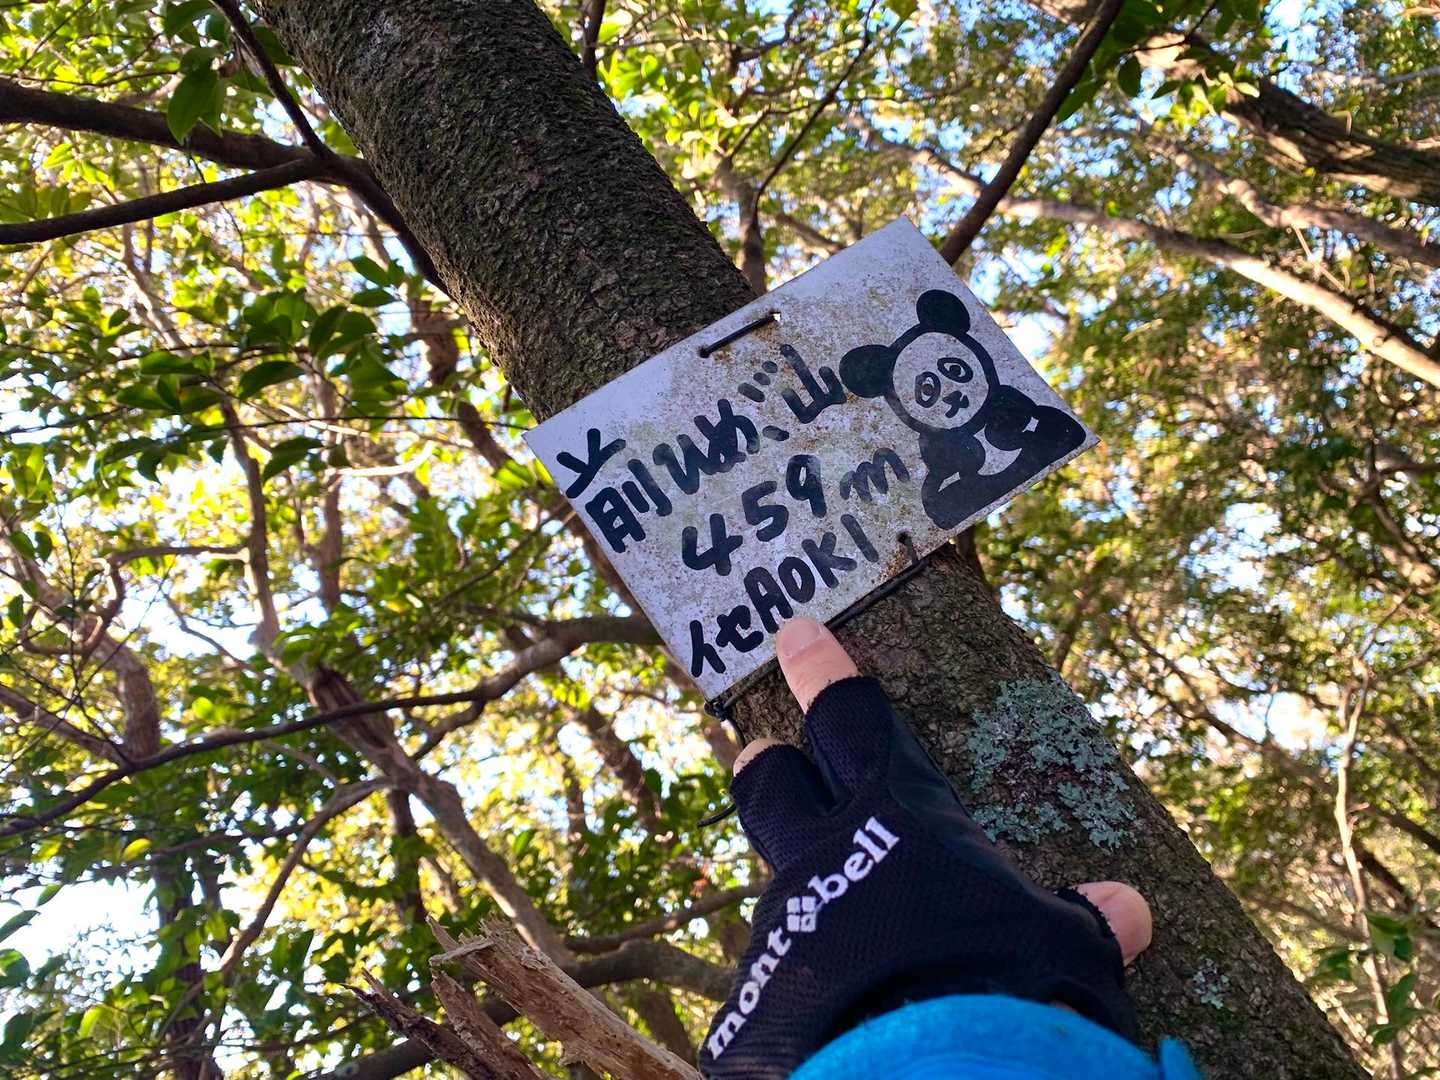 前ひめが山
459m
セAOKI
mont bell